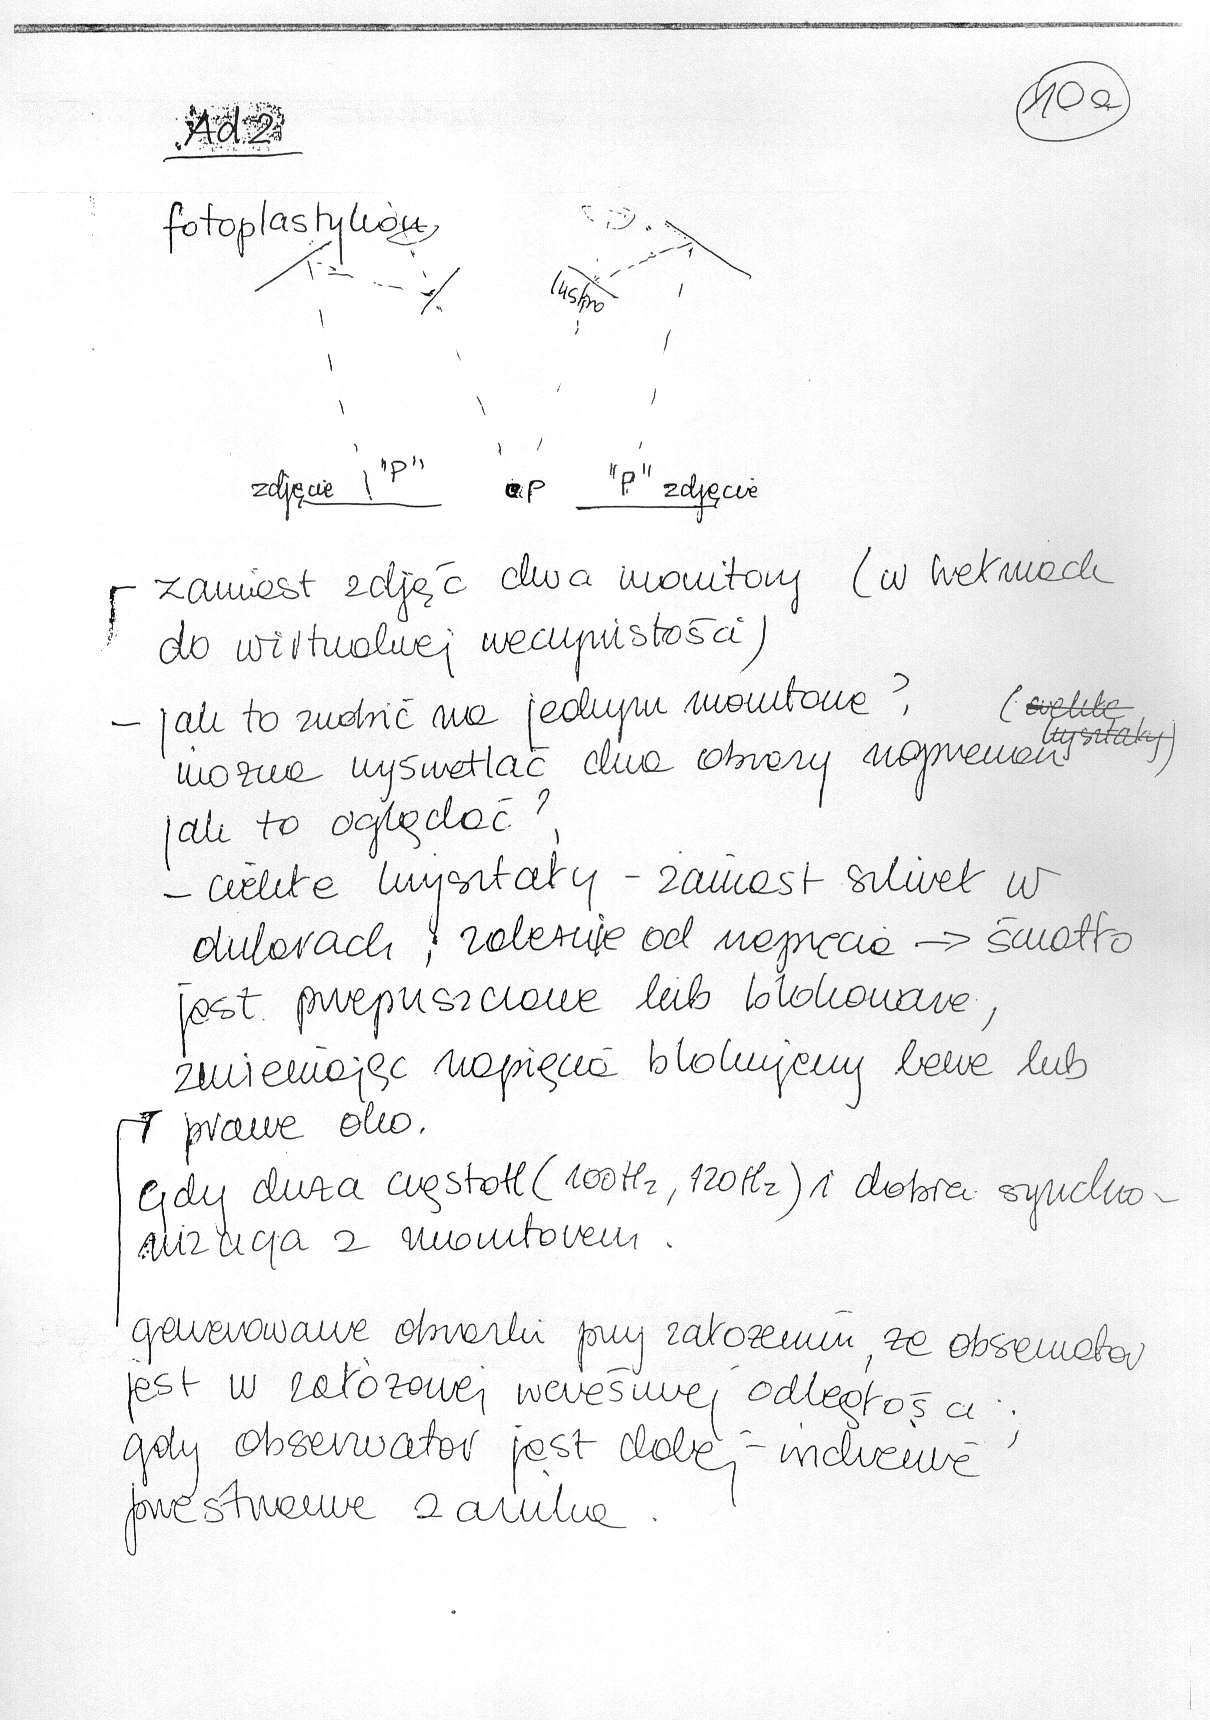 10a
Ad 2
fotoplastykon
lustro
zdjęcie "P" P "P" zdjęcie
- zamiast zdjęć dwa monitory (w hełmach
do wirtualnej rzeczywistości)
- jak to zrobić na jednym monitorze? (ciekłe
kryształy)
można wyświetlać dwa obrazy naprzemian
jak to oglądać?
- ciekłe kryształy - zamiast szkiełek w
okularach; zależnie od napięcia → światło
jest przepuszczane lub blokowane,
zmieniając napięcie blokujemy lewe lub
prawe oko.
Gdy duża częstotl (100Hz, 120Hz) i dobra synchro-
nizacja z monitorem.
generowane obrazki przy założeniu, że obserwator
jest w założonej wcześniej odległości;
gdy obserwator jest dalej - wrażenie
przestrzenne zanika.